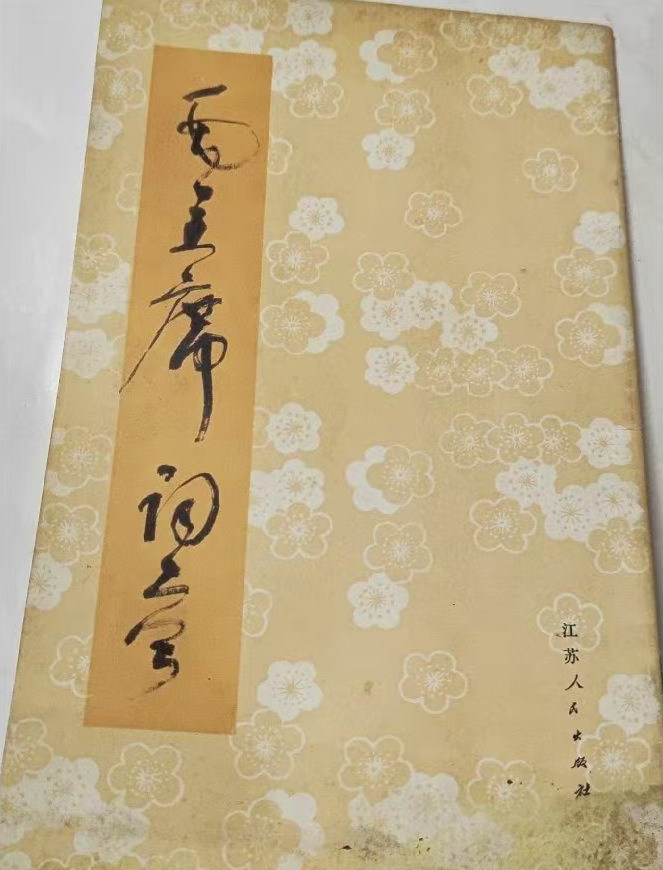 毛主席词二首
江苏人民出版社